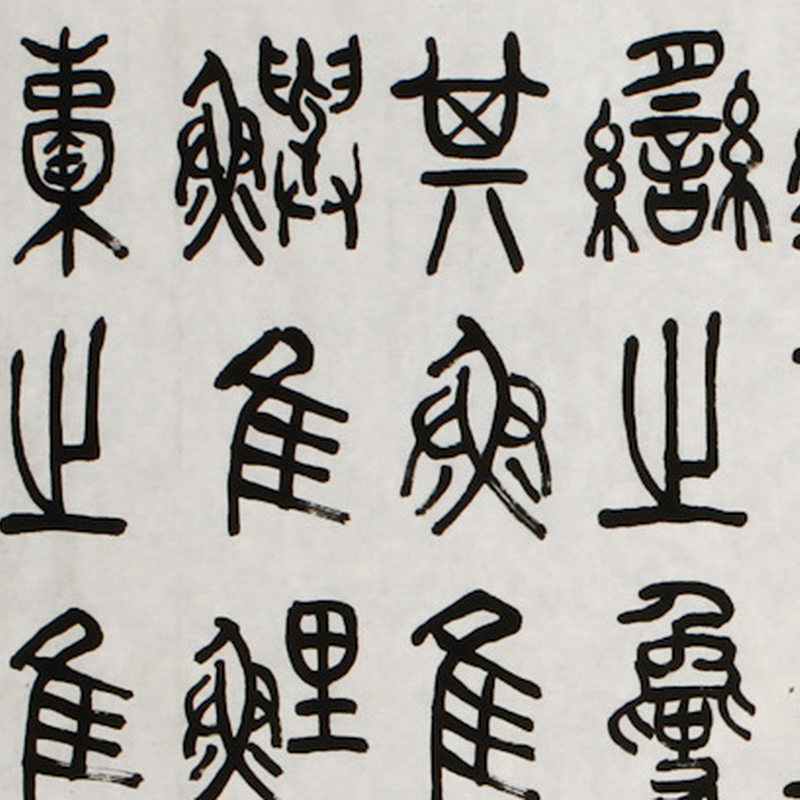 臠之夐
其魚隹
鱮隹鯉
橐之隹